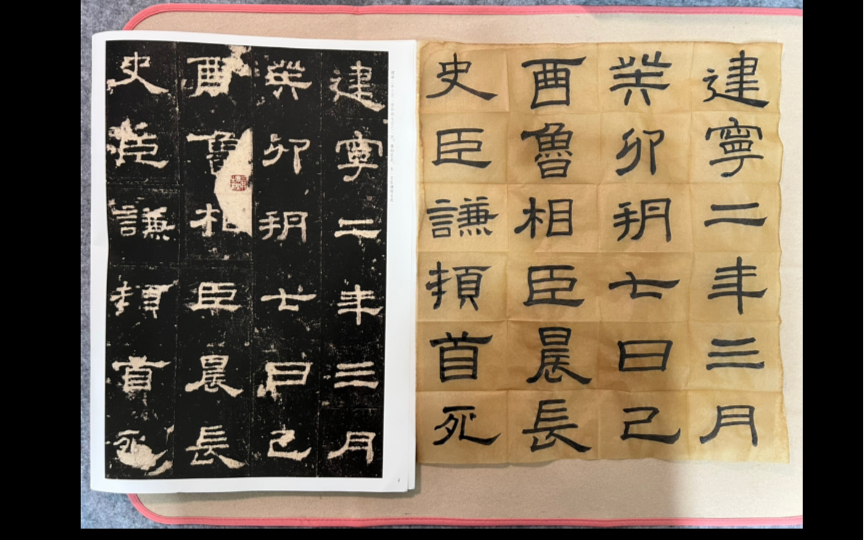 建寧二年三月
癸卯朔七日己
酉魯相臣晨長
史臣謙頓首死
建寧二年三月
癸卯朔七日己
酉魯相臣晨長
史臣謙頓首死